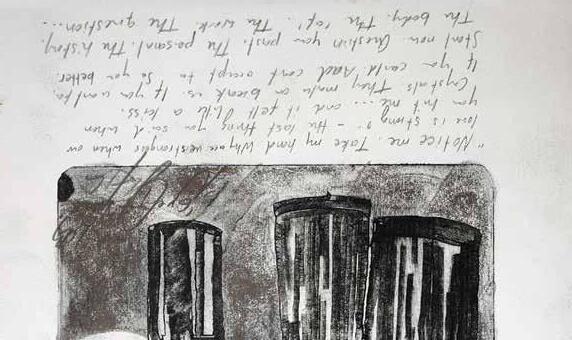 "Notice me. Take my hand. Why are strangers when our
love is strong ?. – the last thing you said when
you hit me ... and it felt like a kiss.
Crystals They make or break us. If you
If you could cant accept to So you better
Start now. Question your past. The present. The history.
The body. The The work. The question...